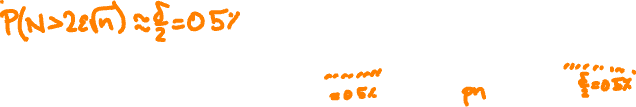 P(N>2e√n) ≈ δ/2 = 0.5%
= 0.5%
pn
δ/2 = 0.5%